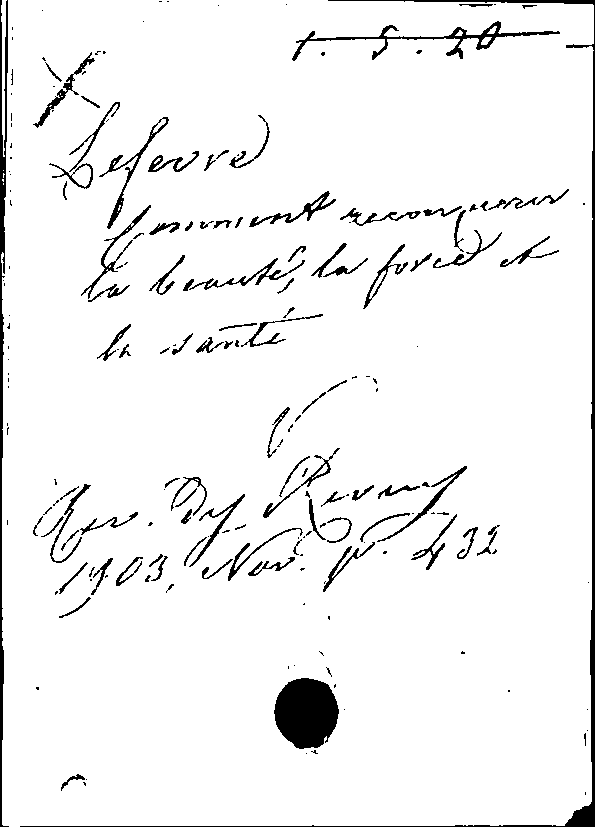 1. 5. 20
Lefevre
Comment reconquérir
la beauté, la force et
la santé
Rev. Dy. Revues
1903, Nov. p. 432